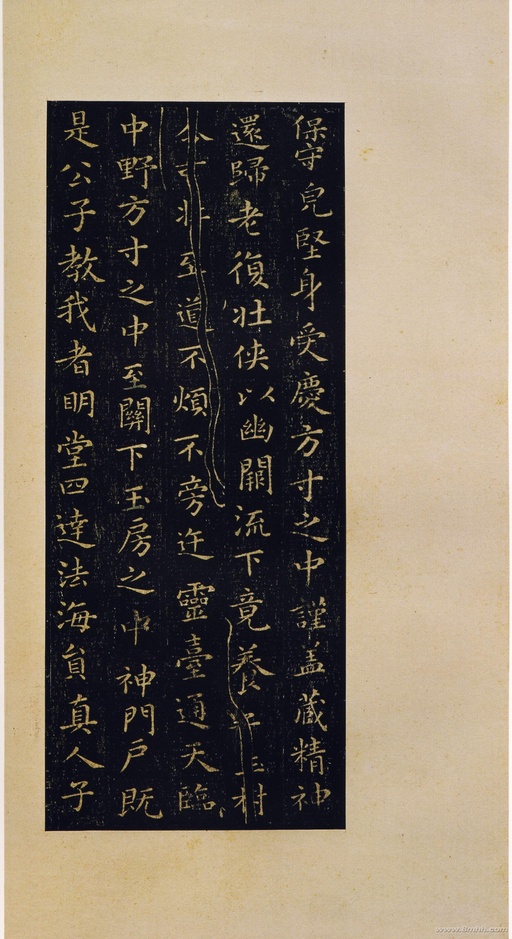 保守皃堅身受慶方寸之中謹盖藏精神
還歸老復壯俠以幽闕流下竟養子玉樹
令可壯至道不煩不旁迕靈臺通天臨
中野方寸之中至關下玉房之中神門戶既
是公子教我者明堂四達法海負真人子